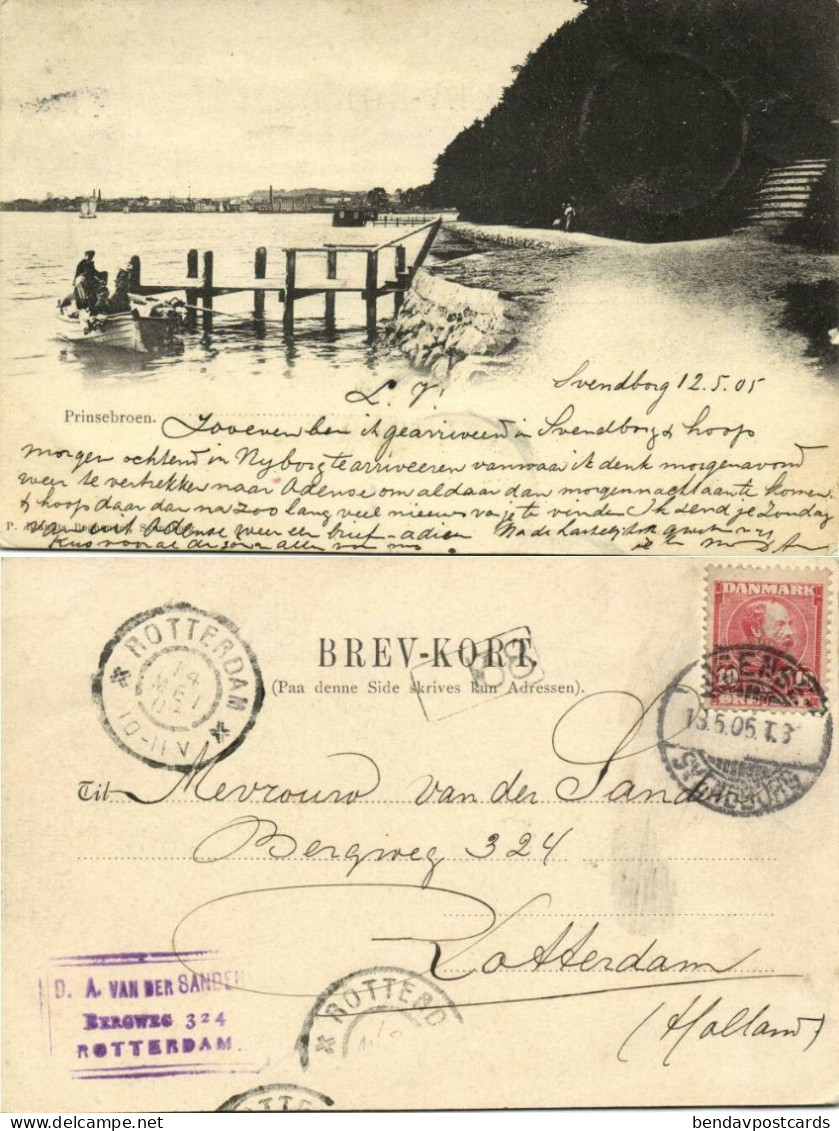 L. V.
Svendborg 12.5.05
Prinsebroen.
Zooeven ben ik gearriveerd in Svendborg & hoop
morgen ochtend in Nyborg te arriveeren vanwaar ik denk morgenavond
weer te vertrekken naar Odense om aldaar dan morgennacht aan te komen,
& hoop daar dan na zoo lang veel nieuws van je te vinden. Ik zend je Zondag
P.
van uit Odense weer een brief - adieu Na de hartelijkste
Kus vooral de allen van mij
DANMARK
BREV-KORT.
(Paa denne Side skrives kun Adressen).
ROTTERDAM
14
MEI
10-11V
ODENSE
13.5.05.
SVENDBORG
Til Mevrouw van der Sande
Bergweg 324
Rotterdam
(Holland)
D. A. VAN DER SANDEN
BERGWEG 324
ROTTERDAM.
ROTTERD
Delcampe.net
bendavpostcards